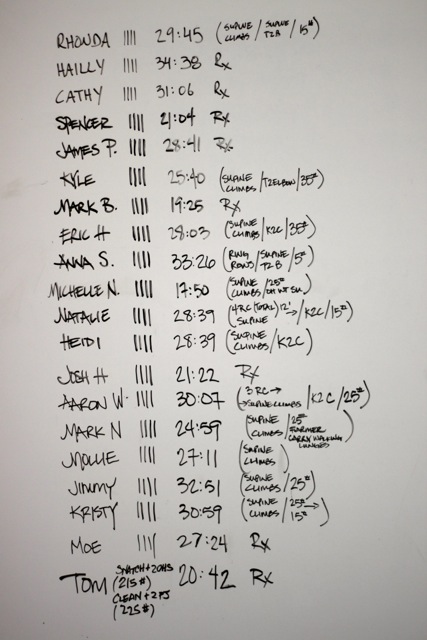 RHONDA |||| 29:45 (SUPINE CLIMBS / SUPINE T2B / 15#)
HAILLY |||| 34:38 Rx
CATHY |||| 31:06 Rx
SPENCER |||| 21:04 Rx
JAMES P. |||| 28:41 Rx
KYLE |||| 25:40 (SUPINE CLIMBS / T2ELBOW / 35#)
MARK B. |||| 19:25 Rx
ERIC H |||| 28:03 (SUPINE CLIMBS / K2C / 35#)
ANNA S. |||| 33:26 (RING ROWS / SUPINE T2B / 5#)
MICHELLE N. |||| 17:50 (SUPINE CLIMBS / 25#
NATALIE |||| 28:39 (4 RC (TOTAL) 12' SUPINE → / K2C / 15#)
HEIDI |||| 28:39 (SUPINE CLIMBS / K2C)
JOSH H |||| 21:22 Rx
AARON W. |||| 30:07 (3 RC → → SUPINE CLIMBS / K2C / 25#)
MARK N |||| 24:59 (SUPINE CLIMBS / 25# FARMER CARRY WALKING LUNGES)
MOLLIE |||| 27:11 (SUPINE CLIMBS)
JIMMY |||| 32:51 (SUPINE CLIMBS / 25#)
KRISTY |||| 30:59 (SUPINE CLIMBS / 25# → 15#)
MOE |||| 27:24 Rx
TOM SNATCH + 2OHS (215#) CLEAN + 2PJ (225#) 20:42 Rx